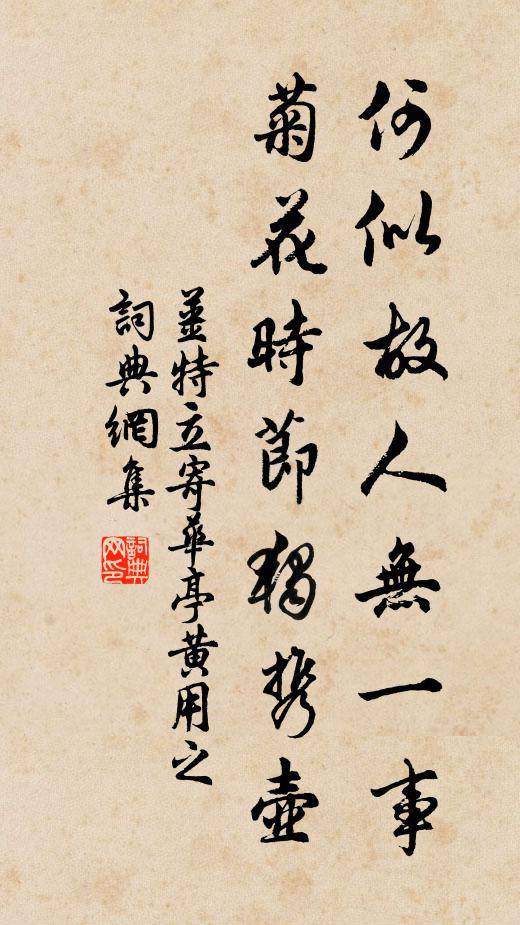 何似故人無一事
菊花時節獨携壺
姜特立寄華亭黄用之
詞典網集
詞典
网印